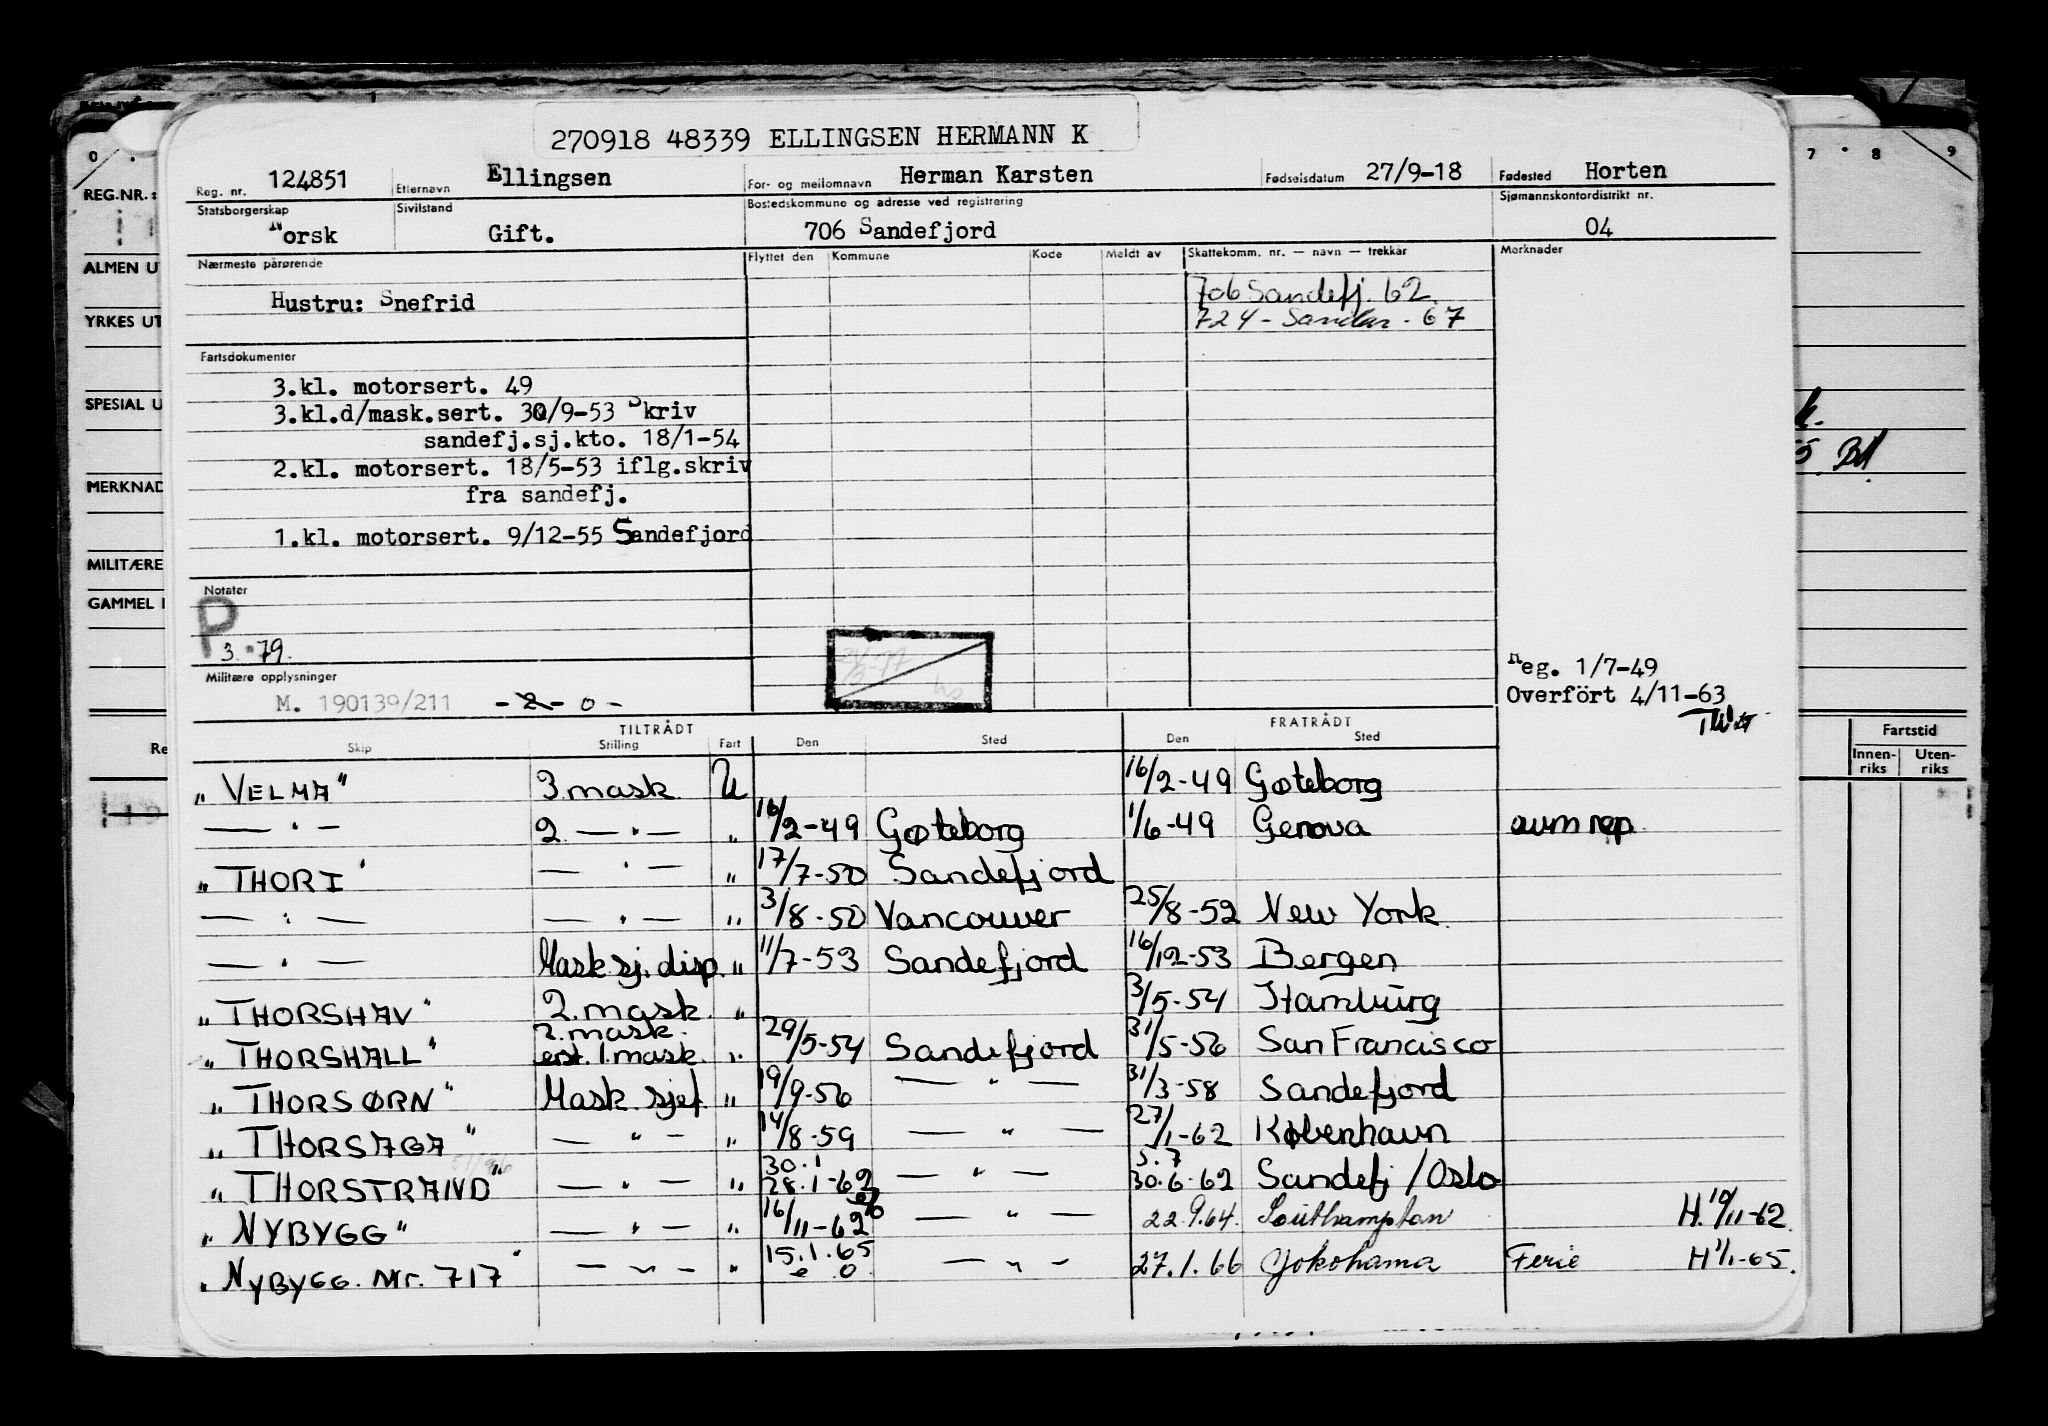 270918 48339 ELLINGSEN HERMANN K
Reg. nr. 124851 Etternavn Ellingsen For- og mellomnavn Herman Karsten Fødselsdatum 27/9-18 Fødested Horten
Statsborgerskap Norsk Sivilstand Gift. Bostedskommune og adresse ved registrering 706 Sandefjord Sjømannskontordistrikt nr. 04
Nærmeste pårørende Flyttet den Kommune Kode Meldt av Skattekomm. nr. — navn — trekkår Merknader
Hustru: Snefrid
706 Sandefj. 62.
724 - Sandar - 67
Fartsdokumenter
3.kl. motorsert. 49
3.kl.d/mask.sert. 30/9-53 Skriv
sandefj.sj.kto. 18/1-54
2.kl. motorsert. 18/5-53 iflg.skriv
fra sandefj.
1.kl. motorsert. 9/12-55 Sandefjord
Notater
P
3.79.
Militære opplysninger
M. 190139/211 - 2 - 0 -
Reg. 1/7-49
Overfört 4/11-63
TILTRÅDT FRATRÅDT
Skip Stilling Fart Den Sted Den Sted
„VELMA" 3.mask U 16/2-49 Gøteborg
— " — 2. — " — „ 16/2-49 Gøteborg 1/6-49 Genova avm rep.
„THOR I" — " — „ 17/7-50 Sandefjord
— " — — " — „ 3/8-50 Vancouver 25/8-52 New York
— " — Mask.sj.disp. „ 11/7-53 Sandefjord 16/12-53 Bergen
„THORSHAV" 2.mask. „ 3/5-54 Hamburg
„THORSHALL" 2.mask. erst. 1.mask. „ 29/5-54 Sandefjord 31/5-56 San Francisco
„THORSØRN" Mask.sjef. „ 19/9-56 — " — 31/3-58 Sandefjord
„THORSAGA" — " — „ 14/8-59 — " — 27/1-62 København
„THORSTRAND" — " — „ 30.1 28.1-62 — " — 5.7 30.6-62 Sandefj / Oslo
„NYBYGG" — " — „ 16/11-62 — " — 22.9.64. Southampton H. 10/11-62.
„NYBYGG. Nr. 717" — " — „ 15.1.65 — " — 27.1.66 Yokohama Ferie H 1/1-65.
REG.NR.:
ALMEN U
YRKES UT
SPESIAL U
MERKNAD
MILITÆRE
GAMMEL
Re
0
7 8 9
Fartstid
Innen-riks Uten-riks